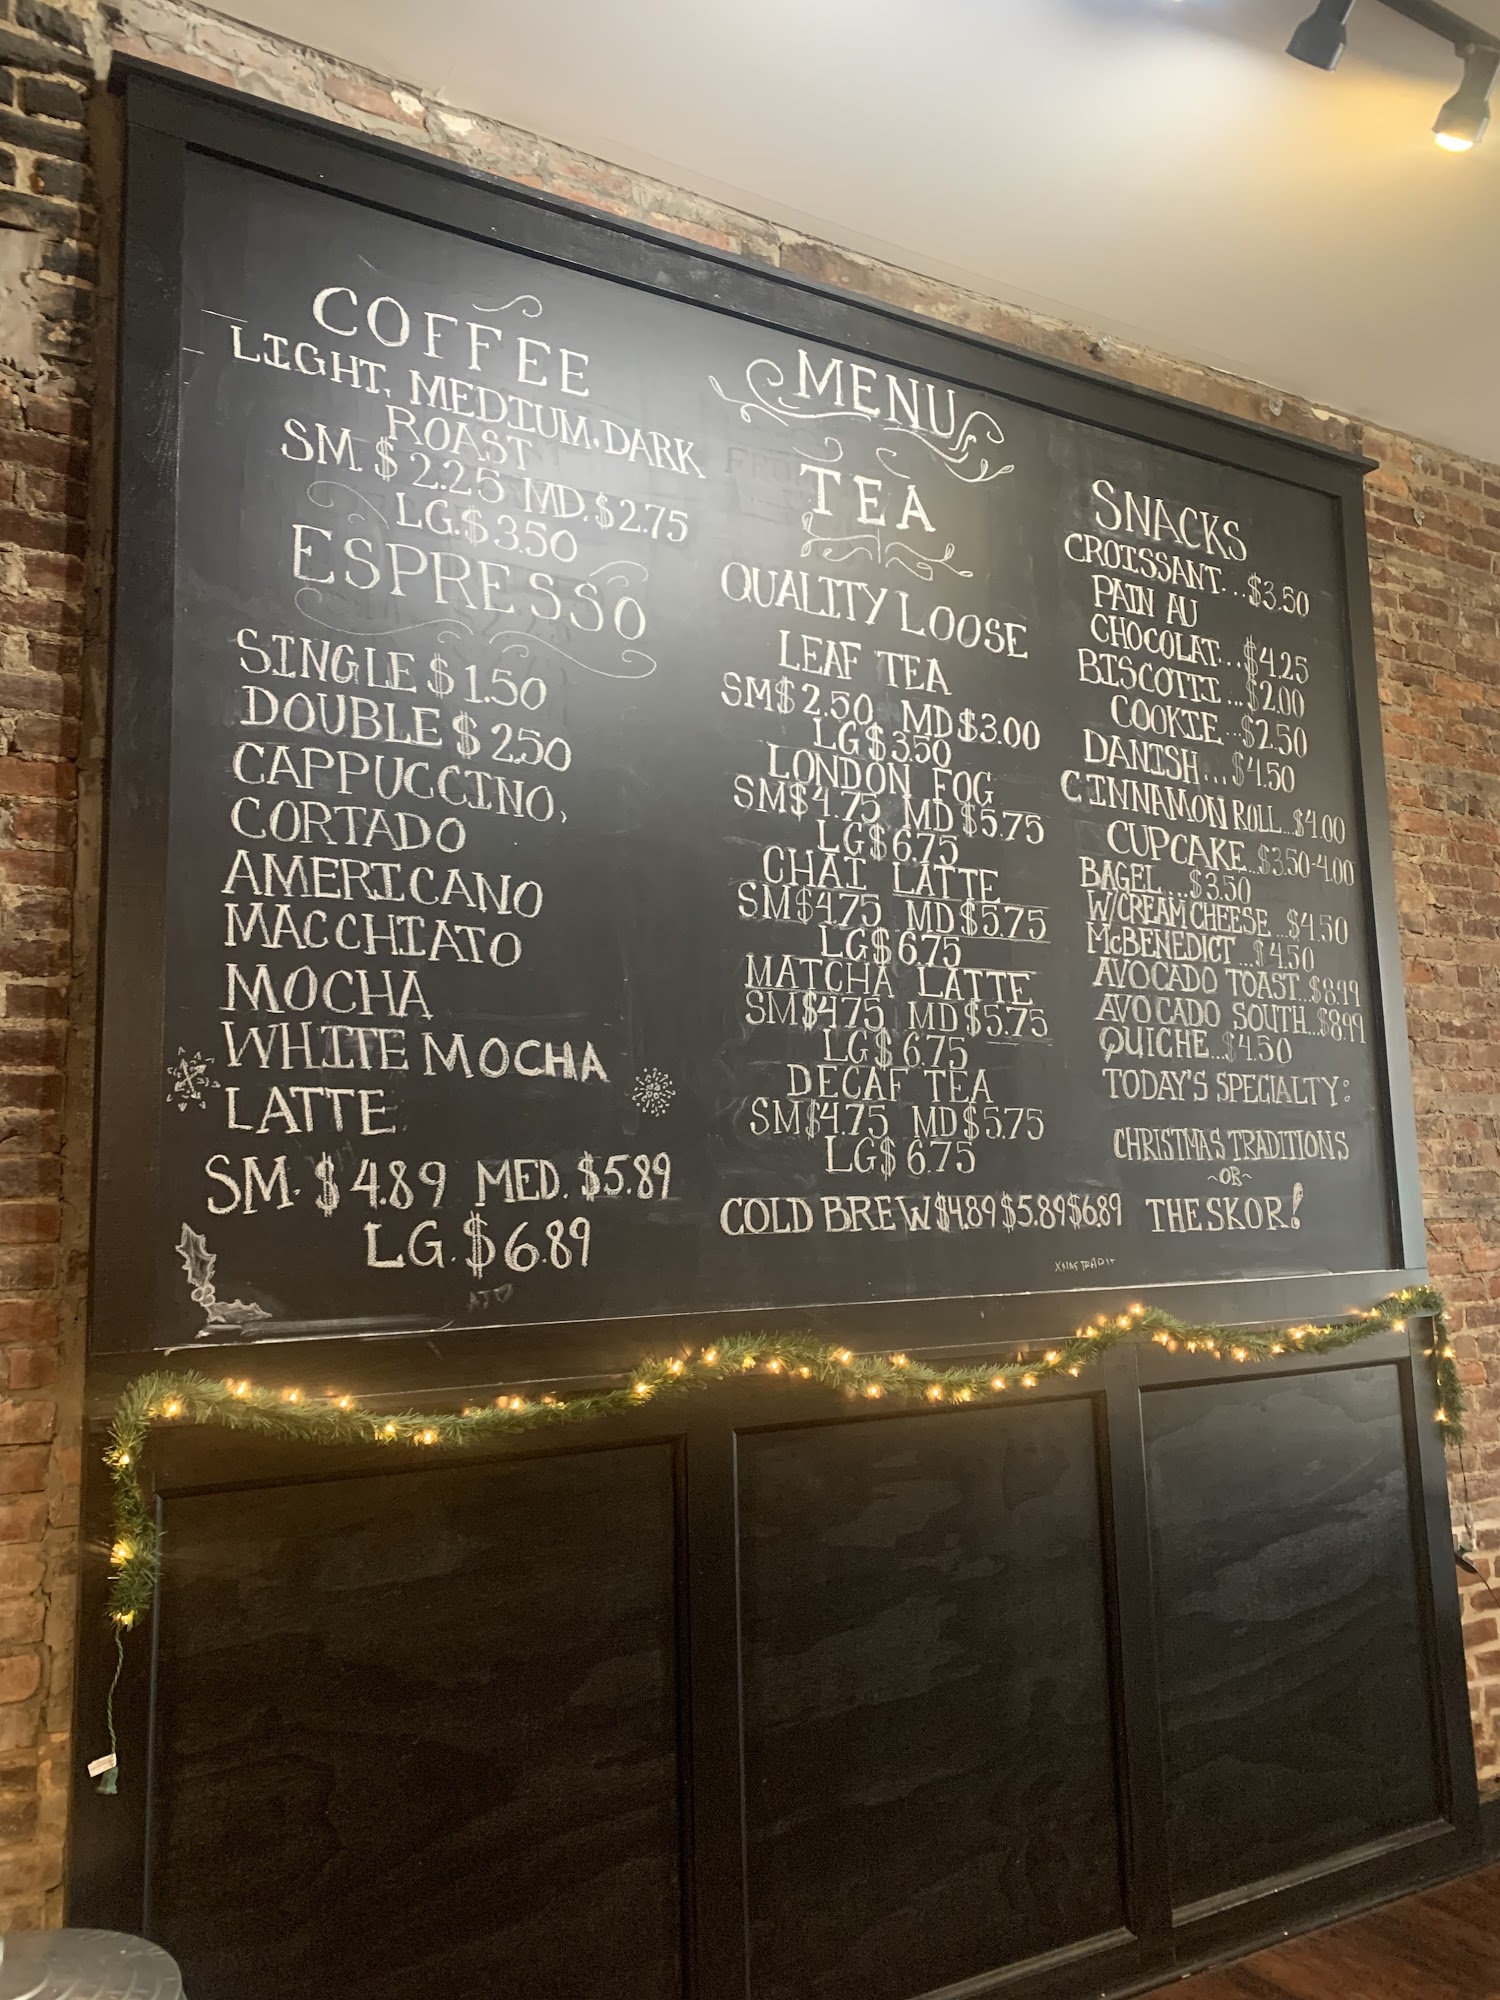 MENU
COFFEE
LIGHT, MEDIUM, DARK
ROAST
SM. $2.25 MD. $2.75
LG. $3.50
ESPRESSO
SINGLE $1.50
DOUBLE $2.50
CAPPUCCINO,
CORTADO
AMERICANO
MACCHIATO
MOCHA
WHITE MOCHA
LATTE
SM. $4.89 MED. $5.89
LG. $6.89
TEA
QUALITY LOOSE
LEAF TEA
SM $2.50 MD $3.00
LG $3.50
LONDON FOG
SM $4.75 MD $5.75
LG $6.75
CHAI LATTE
SM $4.75 MD $5.75
LG $6.75
MATCHA LATTE
SM $4.75 MD $5.75
LG $6.75
DECAF TEA
SM $4.75 MD $5.75
LG $6.75
COLD BREW $4.89 $5.89 $6.89
SNACKS
CROISSANT...$3.50
PAIN AU
CHOCOLAT...$4.25
BISCOTTI...$2.00
COOKIE...$2.50
DANISH...$4.50
CINNAMON ROLL...$4.00
CUPCAKE...$3.50-4.00
BAGEL....$3.50
W/CREAM CHEESE...$4.50
McBENEDICT...$4.50
AVOCADO TOAST...$8.99
AVOCADO SOUTH...$8.99
QUICHE...$4.50
TODAY'S SPECIALTY:
CHRISTMAS TRADITIONS
~OR~
THE SKOR!
XMAS TRADIT